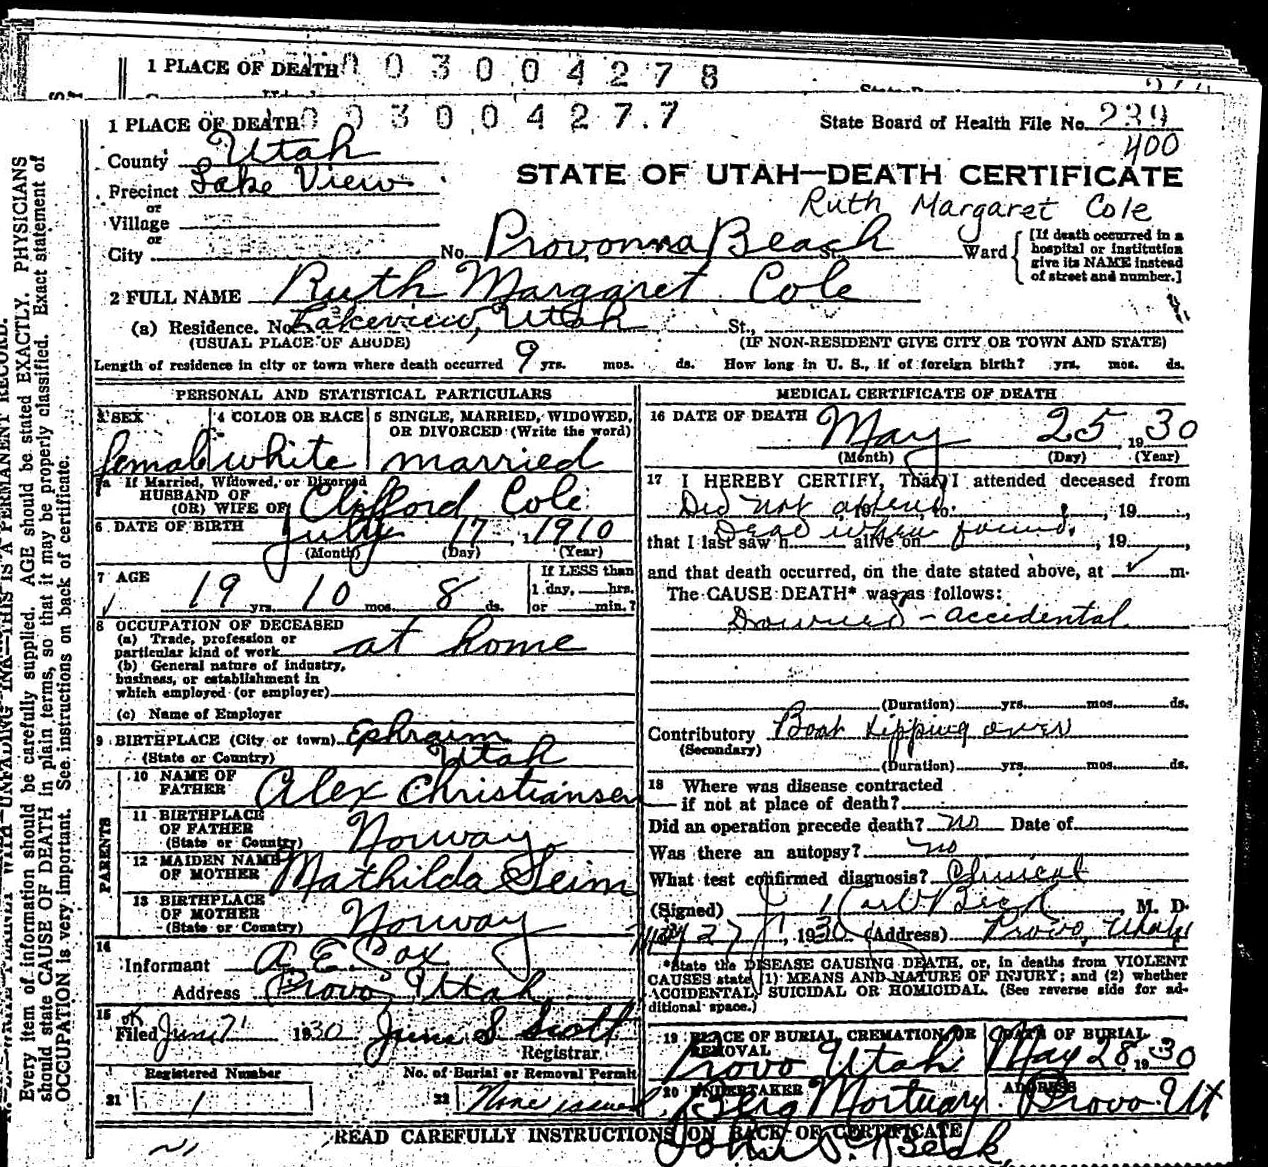 1 PLACE OF DEATH 003004278
1 PLACE OF DEATH 003004277
State Board of Health File No. 239
400
County Utah
Precinct Lake View
or
Village
or
City
STATE OF UTAH—DEATH CERTIFICATE
Ruth Margaret Cole
No. Provonna Beach St. Ward
[If death occurred in a
hospital or institution
give its NAME instead
of street and number.]
2 FULL NAME Ruth Margaret Cole
(a) Residence. No. Lakeview, Utah St.,
(USUAL PLACE OF ABODE) (IF NON-RESIDENT GIVE CITY OR TOWN AND STATE)
Length of residence in city or town where death occurred 9 yrs. mos. ds. How long in U. S., if of foreign birth? yrs. mos. ds.
PERSONAL AND STATISTICAL PARTICULARS
3 SEX 4 COLOR OR RACE 5 SINGLE, MARRIED, WIDOWED,
OR DIVORCED (Write the word)
female white married
5a If Married, Widowed, or Divorced
HUSBAND OF
(OR) WIFE OF Clifford Cole
6 DATE OF BIRTH July 17, 1910
(Month) (Day) (Year)
7 AGE 19 yrs. 10 mos. 8 ds.
If LESS than
1 day, hrs.
or min.?
8 OCCUPATION OF DECEASED
(a) Trade, profession or
particular kind of work at home
(b) General nature of industry,
business, or establishment in
which employed (or employer)
(c) Name of Employer
9 BIRTHPLACE (City or town) Ephraim
(State or Country) Utah
PARENTS
10 NAME OF
FATHER Alex Christiansen
11 BIRTHPLACE
OF FATHER
(State or Country) Norway
12 MAIDEN NAME
OF MOTHER Mathilda Seim
13 BIRTHPLACE
OF MOTHER
(State or Country) Norway
14
Informant A. E. Cox
Address Provo, Utah
15
Filed June 7 1930 June S. Scott
Registrar
Registered Number No. of Burial or Removal Permit
21 1 22 None issued
MEDICAL CERTIFICATE OF DEATH
16 DATE OF DEATH May 25 1930
(Month) (Day) (Year)
17 I HEREBY CERTIFY, That I attended deceased from
Did not attend. 19 to , 19 ,
Dead when found.
that I last saw h alive on , 19 ,
and that death occurred, on the date stated above, at m.
The CAUSE DEATH* was as follows:
Drowned - accidental
(Duration) yrs. mos. ds.
Contributory Boat tipping over
(Secondary)
(Duration) yrs. mos. ds.
18 Where was disease contracted
if not at place of death?
Did an operation precede death? no Date of
Was there an autopsy? no
What test confirmed diagnosis? Clinical
(Signed) J. Karl Beck M. D.
May 27, 1930 (Address) Provo, Utah
*State the DISEASE CAUSING DEATH, or, in deaths from VIOLENT
CAUSES state (1) MEANS AND NATURE OF INJURY; and (2) whether
ACCIDENTAL, SUICIDAL OR HOMICIDAL. (See reverse side for ad-
ditional space.)
19 PLACE OF BURIAL CREMATION OR
REMOVAL
Provo Utah
DATE OF BURIAL
May 28 1930
20 UNDERTAKER ADDRESS
Berg Mortuary Provo Ut
READ CAREFULLY INSTRUCTIONS ON BACK OF CERTIFICATE
Every item of information should be carefully supplied. AGE should be stated EXACTLY. PHYSICIANS
should state CAUSE OF DEATH in plain terms, so that it may be properly classified. Exact statement of
OCCUPATION is very important. See instructions on back of certificate.